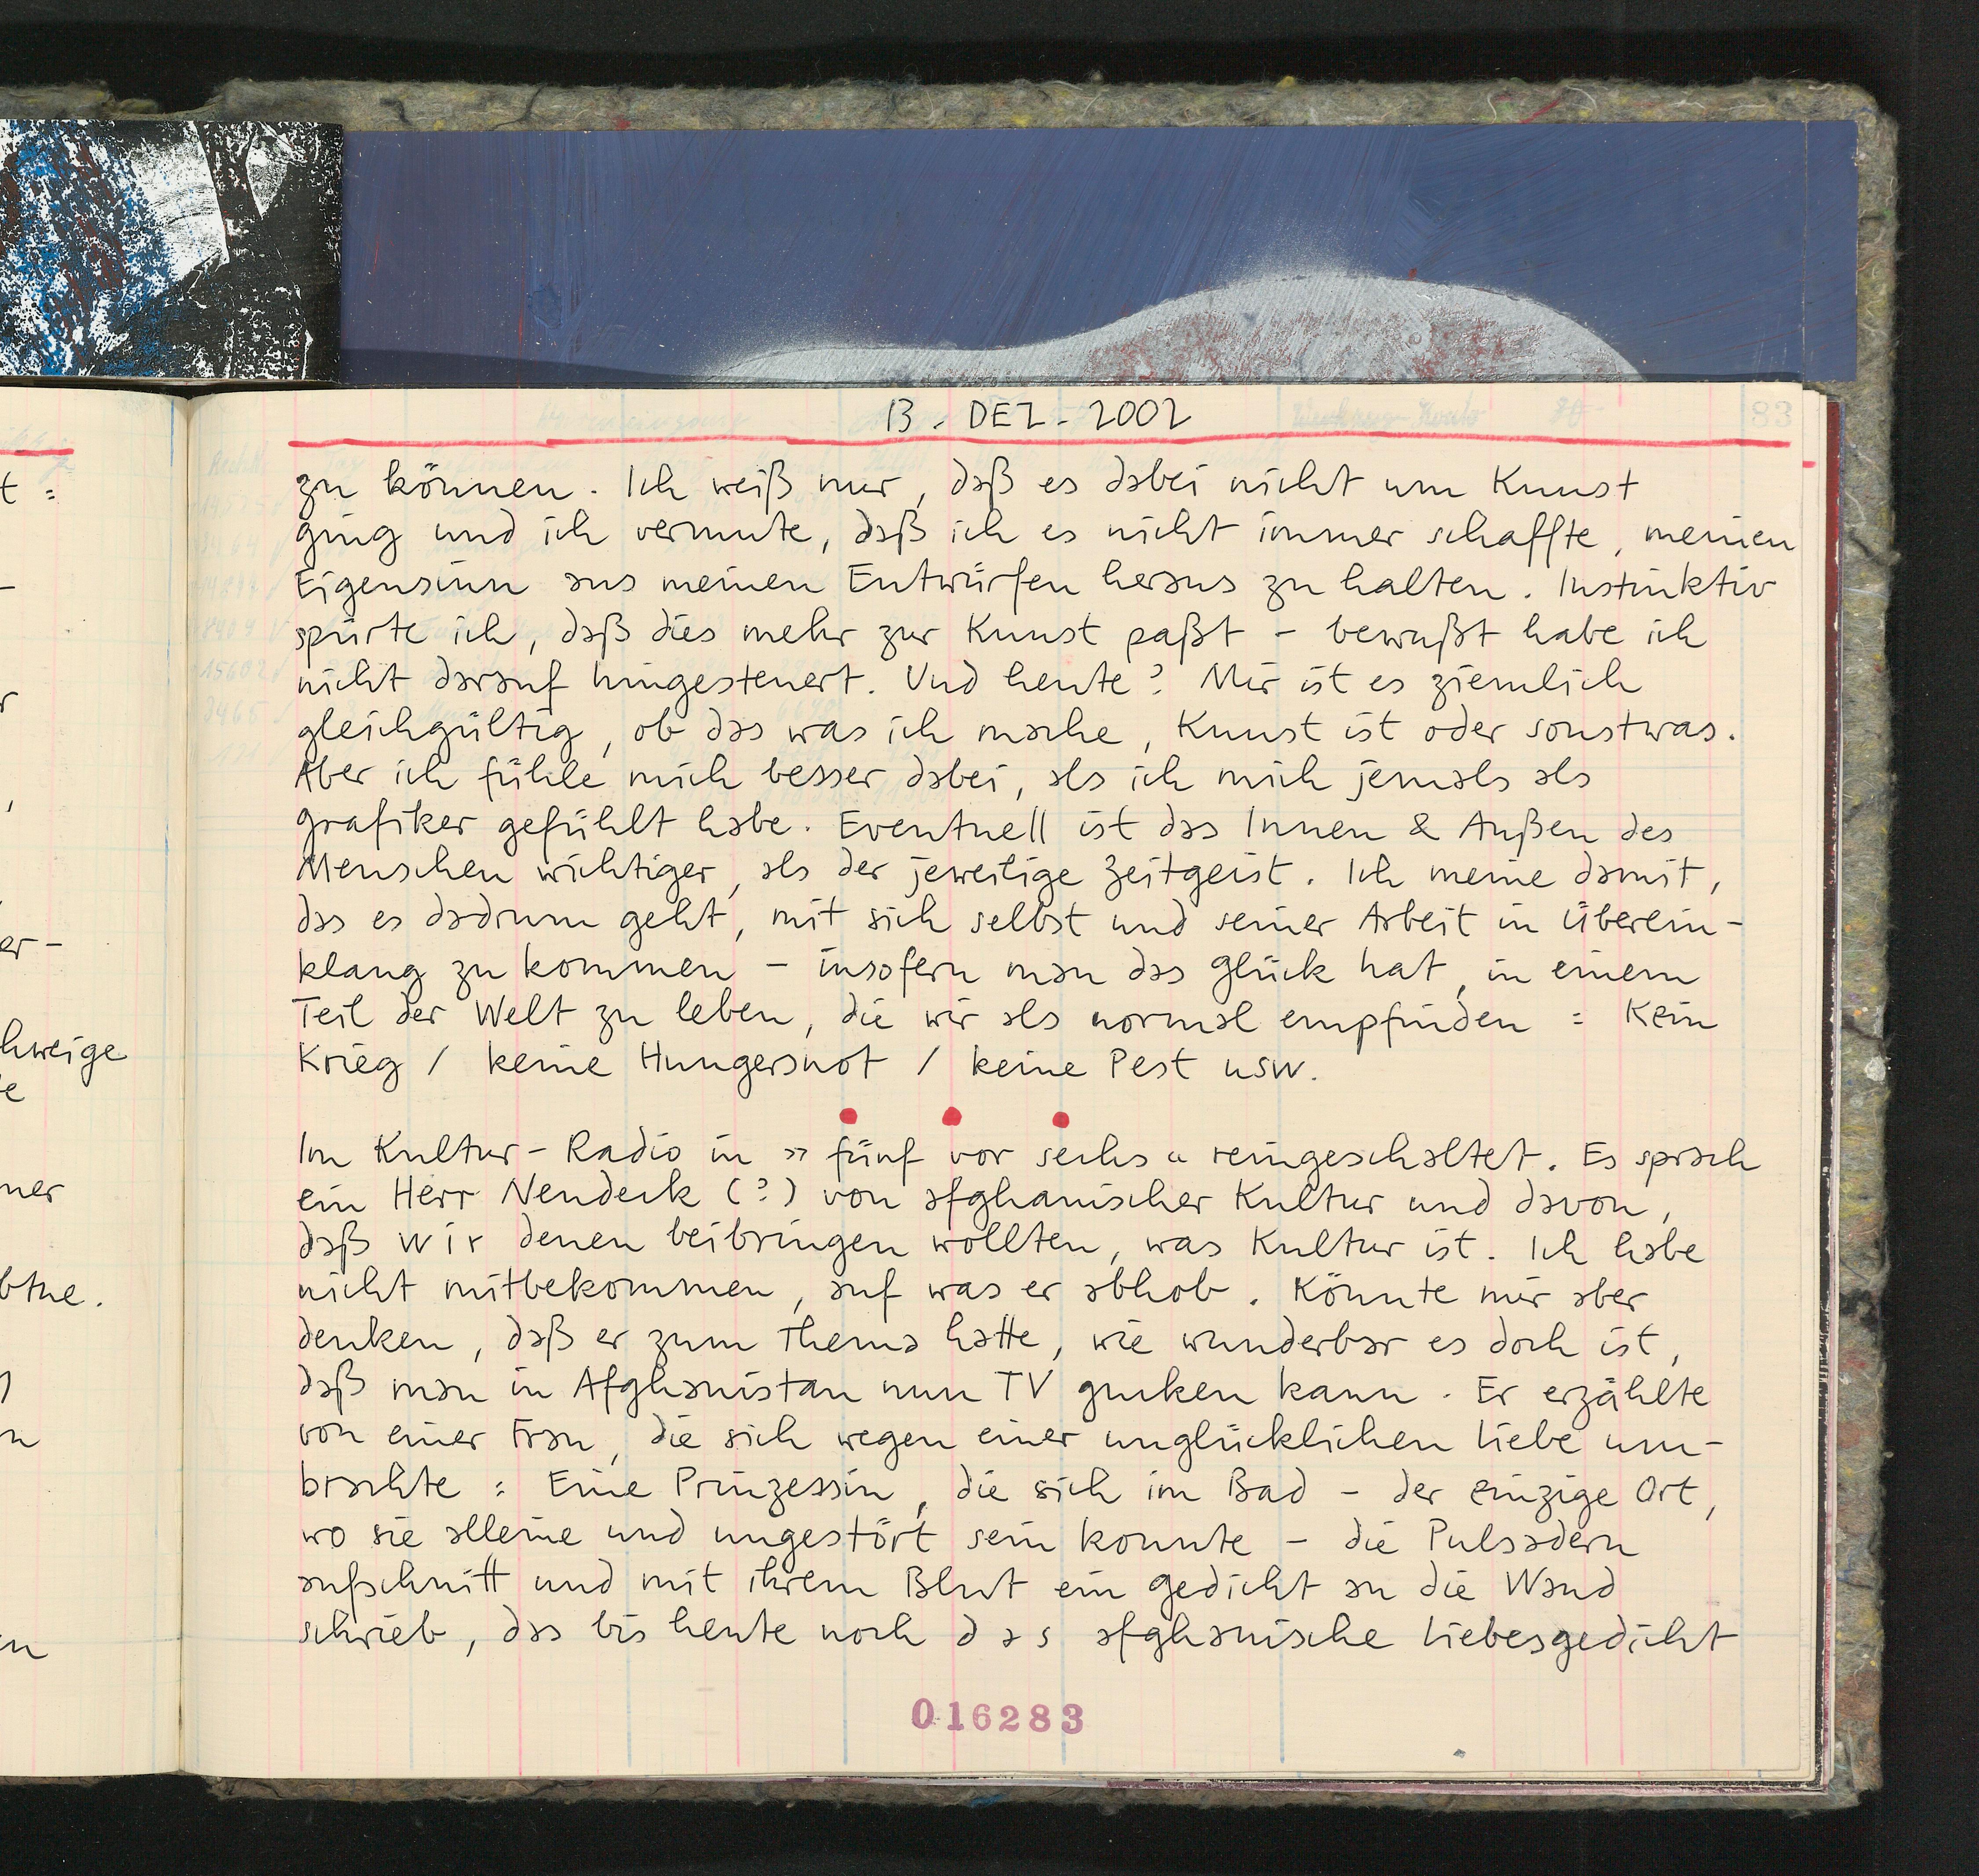 13. DEZ. 2002
zu können. Ich weiß nur, daß es dabei nicht um Kunst
ging und ich vermute, daß ich es nicht immer schaffte, meinen
Eigensinn aus meinen Entwürfen heraus zu halten. Instinktiv
spürte ich, daß dies mehr zur Kunst paßt – bewußt habe ich
nicht darauf hingesteuert. Und heute? Mir ist es ziemlich
gleichgültig, ob das was ich mache, Kunst ist oder sonstwas.
Aber ich fühle mich besser dabei, als ich mich jemals als
Grafiker gefühlt habe. Eventuell ist das Innen & Außen des
Menschen wichtiger, als der jeweilige Zeitgeist. Ich meine damit,
das es dadrum geht, mit sich selbst und seiner Arbeit in Überein-
klang zu kommen – insofern man das Glück hat, in einem
Teil der Welt zu leben, die wir als normal empfinden : Kein
Krieg / keine Hungersnot / keine Pest usw.
Im Kultur-Radio in » fünf vor sechs « reingeschaltet. Es sprach
ein Herr Neudeck (?) von afghanischer Kultur und davon,
daß wir denen beibringen wollten, was Kultur ist. Ich habe
nicht mitbekommen, auf was er abhob. Könnte mir aber
denken, daß er zum Thema hatte, wie wunderbar es doch ist,
daß man in Afghanistan nun TV gucken kann. Er erzählte
von einer Frau, die sich wegen einer unglücklichen Liebe um-
brachte : Eine Prinzessin, die sich im Bad – der einzige Ort,
wo sie alleine und ungestört sein konnte – die Pulsadern
aufschnitt und mit ihrem Blut ein Gedicht an die Wand
schrieb, das bis heute noch d a s afghanische Liebesgedicht
016283
83
t :
–
r
,
er –
hweige
e
mer
btue.
n
en